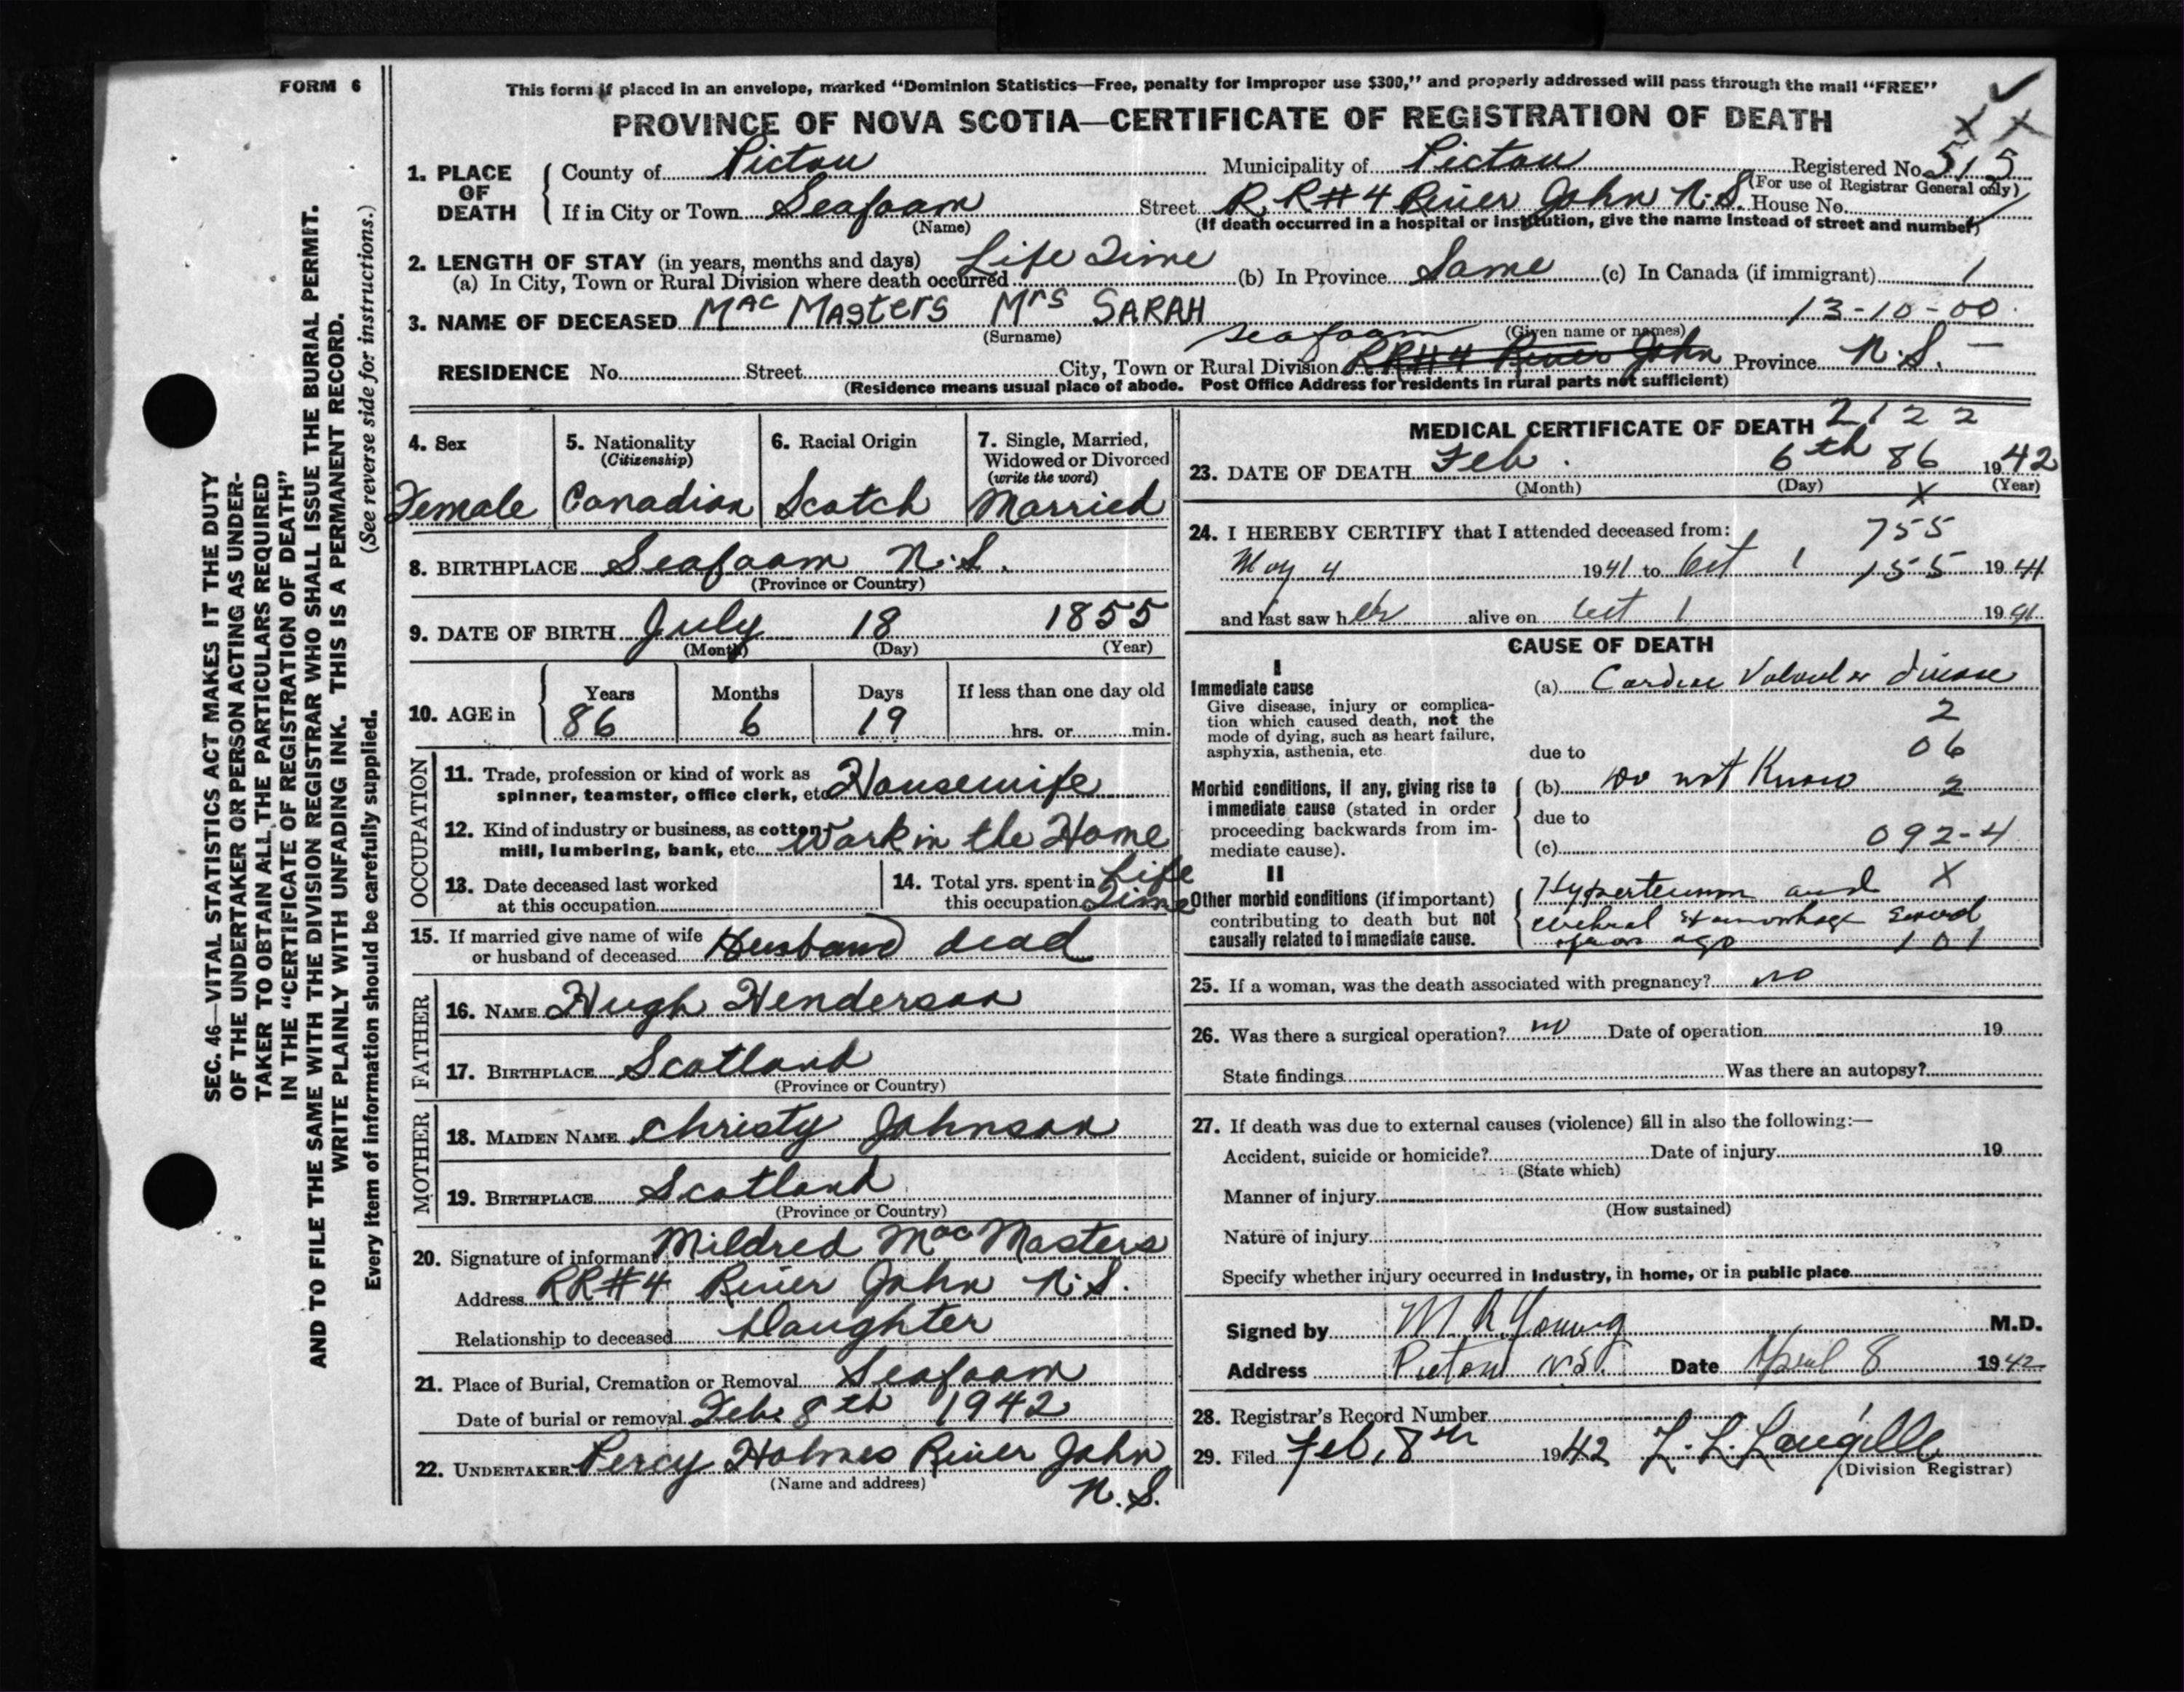 FORM 6
This form if placed in an envelope, marked "Dominion Statistics—Free, penalty for improper use $300," and properly addressed will pass through the mail "FREE"
PROVINCE OF NOVA SCOTIA—CERTIFICATE OF REGISTRATION OF DEATH
SEC. 46—VITAL STATISTICS ACT MAKES IT THE DUTY
OF THE UNDERTAKER OR PERSON ACTING AS UNDER-
TAKER TO OBTAIN ALL THE PARTICULARS REQUIRED
IN THE "CERTIFICATE OF REGISTRATION OF DEATH"
AND TO FILE THE SAME WITH THE DIVISION REGISTRAR WHO SHALL ISSUE THE BURIAL PERMIT.
WRITE PLAINLY WITH UNFADING INK. THIS IS A PERMANENT RECORD.
Every item of information should be carefully supplied. (See reverse side for instructions.)
1. PLACE OF DEATH
County of Pictou Municipality of Pictou Registered No. 515
(For use of Registrar General only)
If in City or Town Seafoam Street R.R#4 River John N.S. House No.
(Name) (If death occurred in a hospital or institution, give the name instead of street and number)
2. LENGTH OF STAY (in years, months and days)
(a) In City, Town or Rural Division where death occurred Life Time (b) In Province Same (c) In Canada (if immigrant) 1
3. NAME OF DECEASED MacMasters Mrs SARAH 13-10-00
(Surname) (Given name or names)
seafoam
RESIDENCE No. Street City, Town or Rural Division RR#4 River John Province N.S. —
(Residence means usual place of abode. Post Office Address for residents in rural parts not sufficient)
4. Sex
Female
5. Nationality
(Citizenship)
Canadian
6. Racial Origin
Scotch
7. Single, Married,
Widowed or Divorced
(write the word)
Married
8. BIRTHPLACE Seafoam N.S.
(Province or Country)
9. DATE OF BIRTH July 18 1855
(Month) (Day) (Year)
10. AGE in
Years Months Days If less than one day old
86 6 19 hrs. or min.
OCCUPATION
11. Trade, profession or kind of work as
spinner, teamster, office clerk, etc. Housewife
12. Kind of industry or business, as cotton-
mill, lumbering, bank, etc. Work in the Home
13. Date deceased last worked
at this occupation
14. Total yrs. spent in
this occupation Life Time
15. If married give name of wife
or husband of deceased Husband dead
FATHER
16. NAME Hugh Henderson
17. BIRTHPLACE Scotland
(Province or Country)
MOTHER
18. MAIDEN NAME Christy Johnson
19. BIRTHPLACE Scotland
(Province or Country)
20. Signature of informant Mildred MacMasters
Address RR#4 River John N.S.
Relationship to deceased Daughter
21. Place of Burial, Cremation or Removal Seafoam
Date of burial or removal Feb. 8th 1942
22. UNDERTAKER Percy Holmes River John
(Name and address) N.S.
MEDICAL CERTIFICATE OF DEATH 2122
23. DATE OF DEATH Feb. 6th 86 1942
(Month) (Day) (Year)
X
24. I HEREBY CERTIFY that I attended deceased from:
755
May 4 1941 to Oct 1 155 1941
and last saw her alive on Oct 1 1941
CAUSE OF DEATH
I
Immediate cause
Give disease, injury or complica-
tion which caused death, not the
mode of dying, such as heart failure,
asphyxia, asthenia, etc.
(a) Cardiac Valvular disease
2
due to 06
Morbid conditions, if any, giving rise to
immediate cause (stated in order
proceeding backwards from im-
mediate cause).
(b) Do not Know 2
due to
(c) 092-4
II
Other morbid conditions (if important)
contributing to death but not
causally related to immediate cause.
Hypertension and X
cerebral Hemorhage several
years ago 101
25. If a woman, was the death associated with pregnancy? no
26. Was there a surgical operation? no Date of operation 19
State findings Was there an autopsy?
27. If death was due to external causes (violence) fill in also the following:—
Accident, suicide or homicide? Date of injury 19
(State which)
Manner of injury
(How sustained)
Nature of injury
Specify whether injury occurred in Industry, in home, or in public place
Signed by M R Young M.D.
Address Pictou N.S. Date April 8 1942
28. Registrar's Record Number
29. Filed Feb, 8th 1942 L. L. Langille
(Division Registrar)